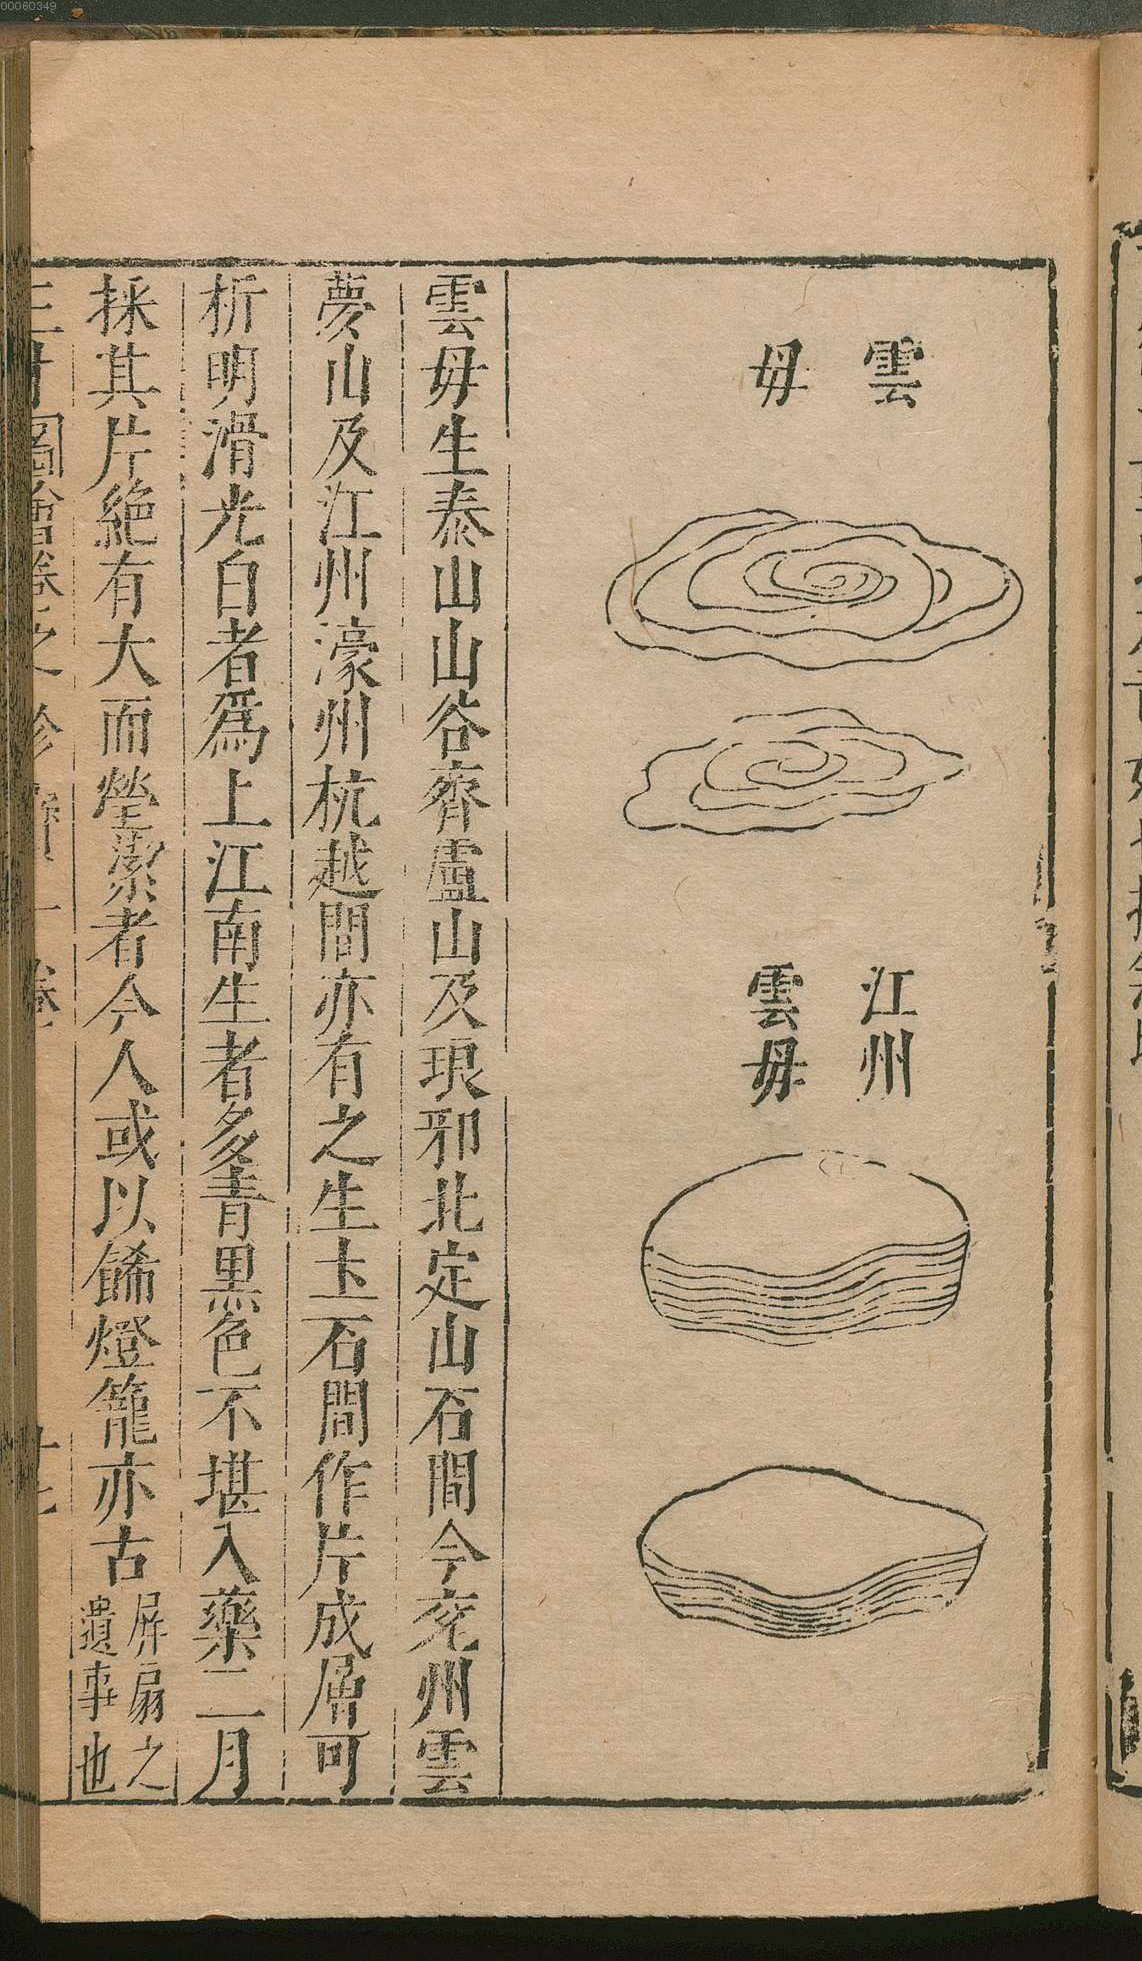 00060349
雲
母
江州
雲母
雲母生泰山山谷齊盧山及琅邪北定山石間今兖州雲
夢山及江州濠州杭越間亦有之生土石間作片成層可
析明滑光白者爲上江南生者多青黒色不堪入藥二月
採其片絕有大而瑩潔者今人或以餙燈籠亦古
屏扇之
遺事也
三才圖會卷之珍寶一卷